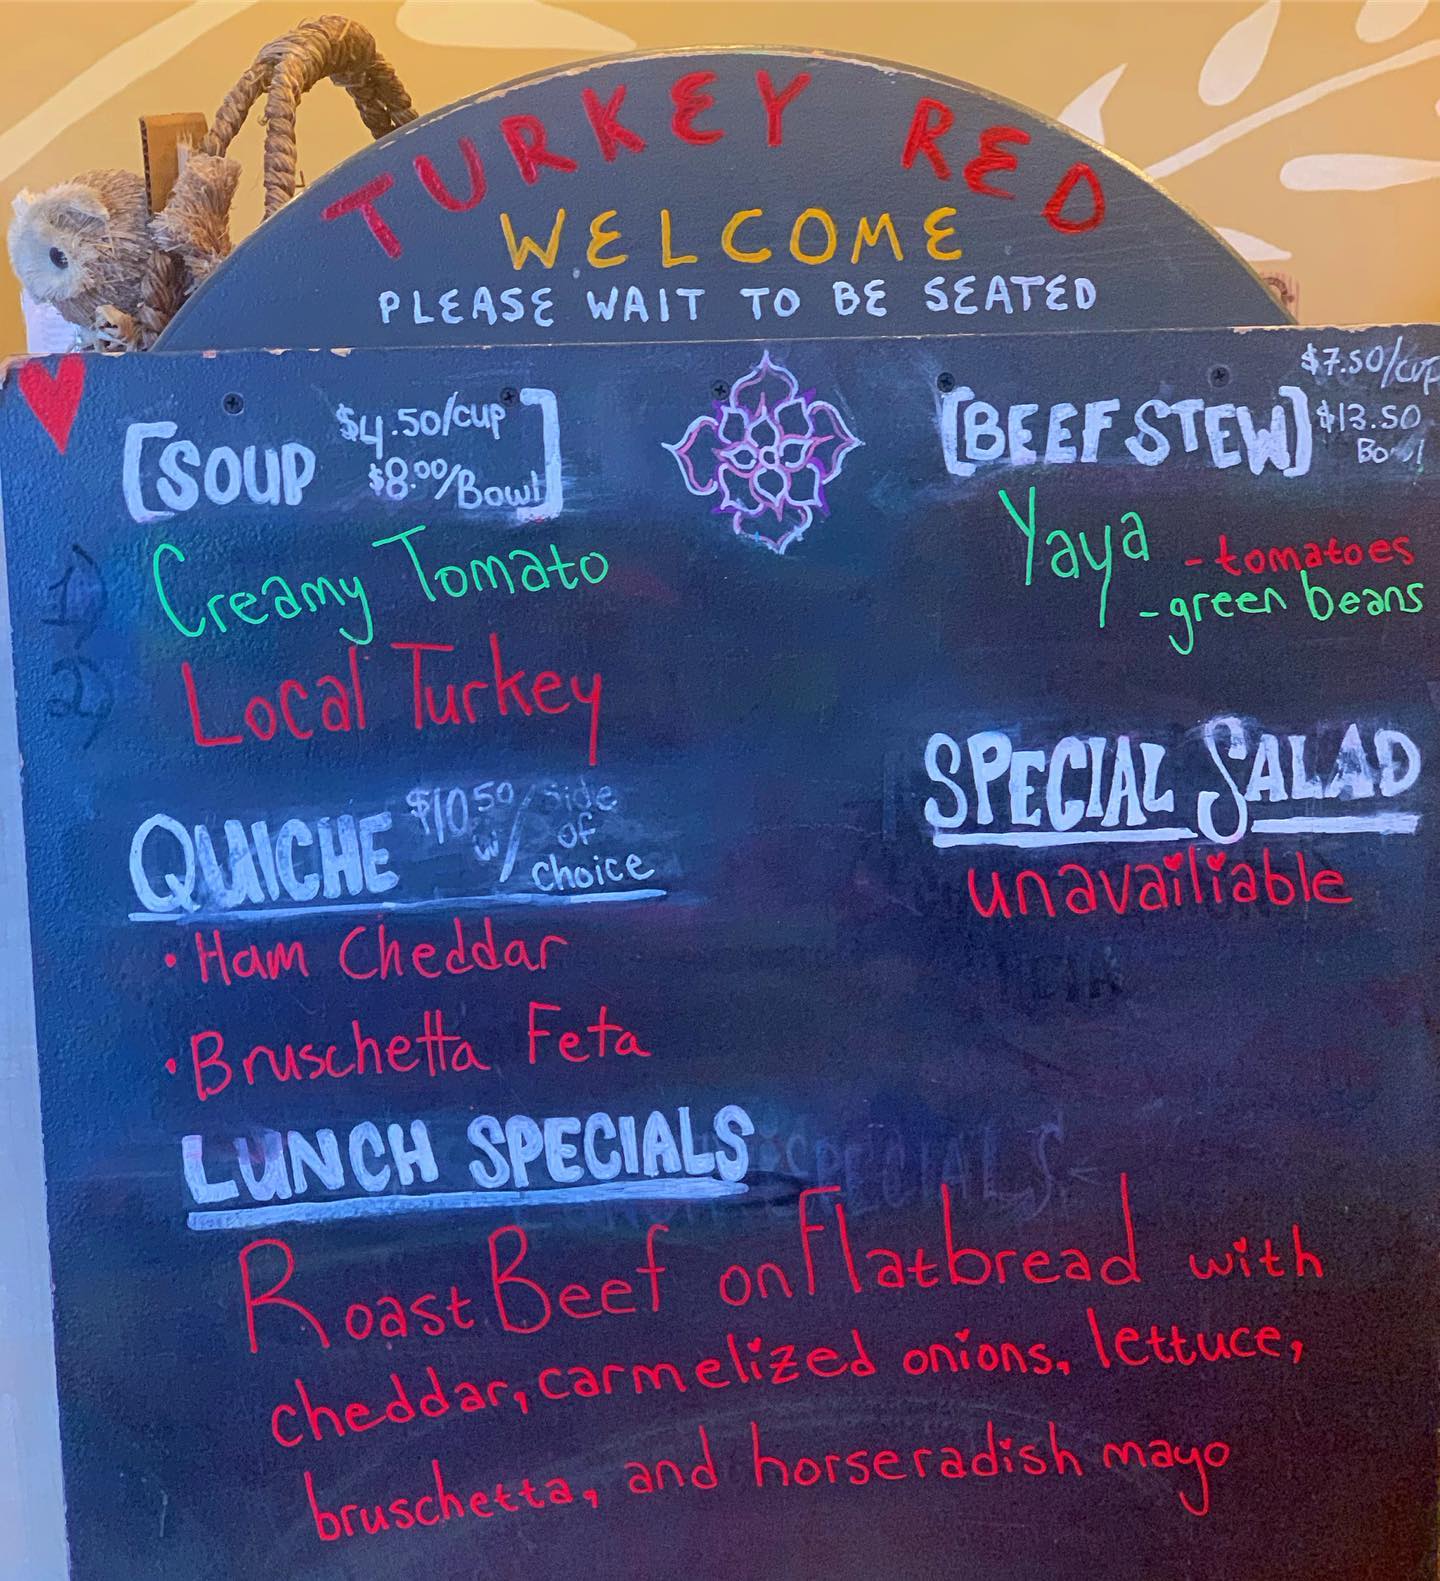 TURKEY RED
WELCOME
PLEASE WAIT TO BE SEATED
[SOUP $4.50/cup
$8.00/Bowl]
Creamy Tomato
Local Turkey
1)
2)
QUICHE $10.50 w/ Side
of
choice
• Ham Cheddar
• Bruschetta Feta
[BEEF STEW] $7.50/cup
$13.50
Bowl
Yaya - tomatoes
- green beans
SPECIAL SALAD
unavailiable
LUNCH SPECIALS
Roast Beef on Flatbread with
cheddar, carmelized onions, lettuce,
bruschetta, and horseradish mayo